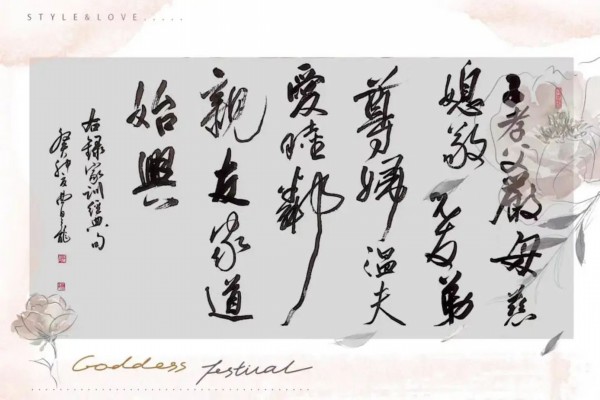 STYLE&LOVE.....
子孝父嚴母慈
媳敬兄友弟
尊婦溫夫
愛睦鄰
親友家道
始興
右録家训經典句
癸卯
Goddess festival